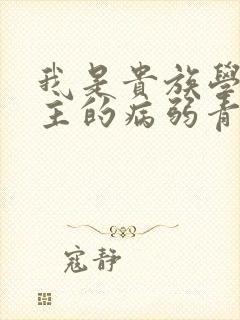 我是貴族學
主的病弱青
寇靜